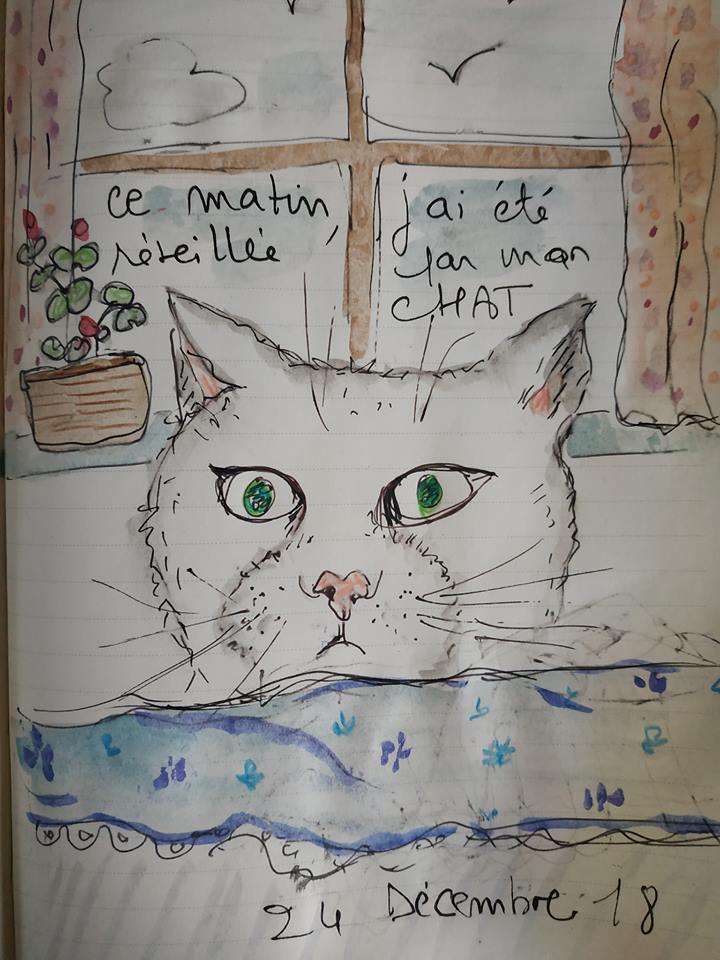 ce matin j'ai été
réveillée par mon
CHAT
24 Décembre 18